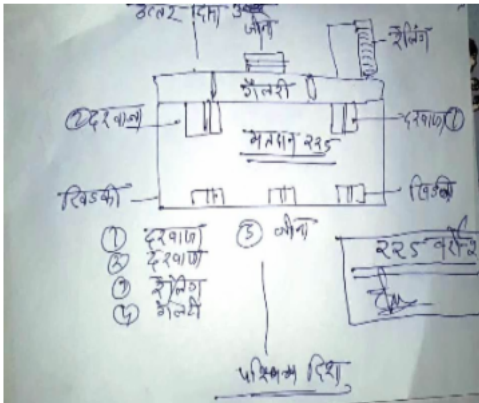 उत्तर दिशा
जीना
रेलिंग
गॅलरी
② दरवाजा
दरवाजा ①
मतदान २२5
खिडकी
खिडकी
① दरवाजा ⑤ जीना
② दरवाजा
③ रेलिंग
④ गॅलरी
२२5
पश्चिम दिशा